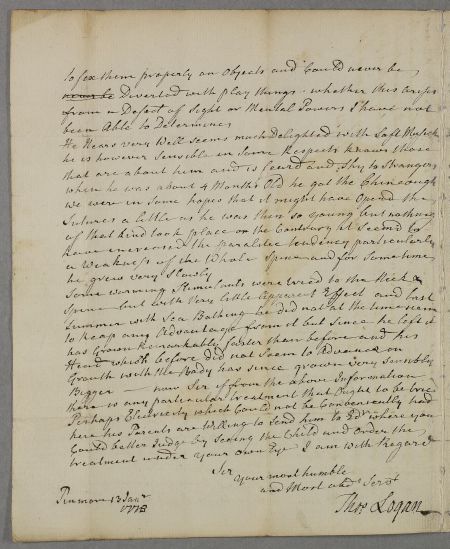 to fix them properly on Objects and Could never be
never be Diverted with play things - whether this arises
from a Defect of Sight or Mental Powers I have not
been Able to Determine
He Hears very Well seems much Delighted with Soft Musick
he is however Sensible in Some Respects knows those
that are about him and is feard and Shy to Strangers
when he was about 4 Months Old he got the Chincough
we were in Some hopes that it might have Opened the
Sutures a little as he was then so young but nothing
of that kind took place on the Contrary it Seem'd to
have increased the paralitic tendency particularly
a Weakness of the Whole Spine and for Sometime
he grew very Slowly
Some warming Stimulants were tried to the Neck &
Spine but with Very little Apparent Effect and last
Summer with Sea Bathing he did not at the time seem
to Reap any Advantage from it but Since he left it
has Grown Remarkably faster than before and his
Head which before did not Seem to Advance in
Grouth with the Body has since grown very Sensibly
Bigger - now Ser if from the above Information
there is any particular treatment that Ought to be tried
Perhaps Electricity which Could not be Conveniently had
here his Parents are Willing to Send him to Edr where you
Could better Judge by Seeing the Child and Order the
treatment under your Own Eye I am with Regard
Ser
Your most humble
and Most obdt Sert
Thos Logan
Pinmore 13 Janr
1778